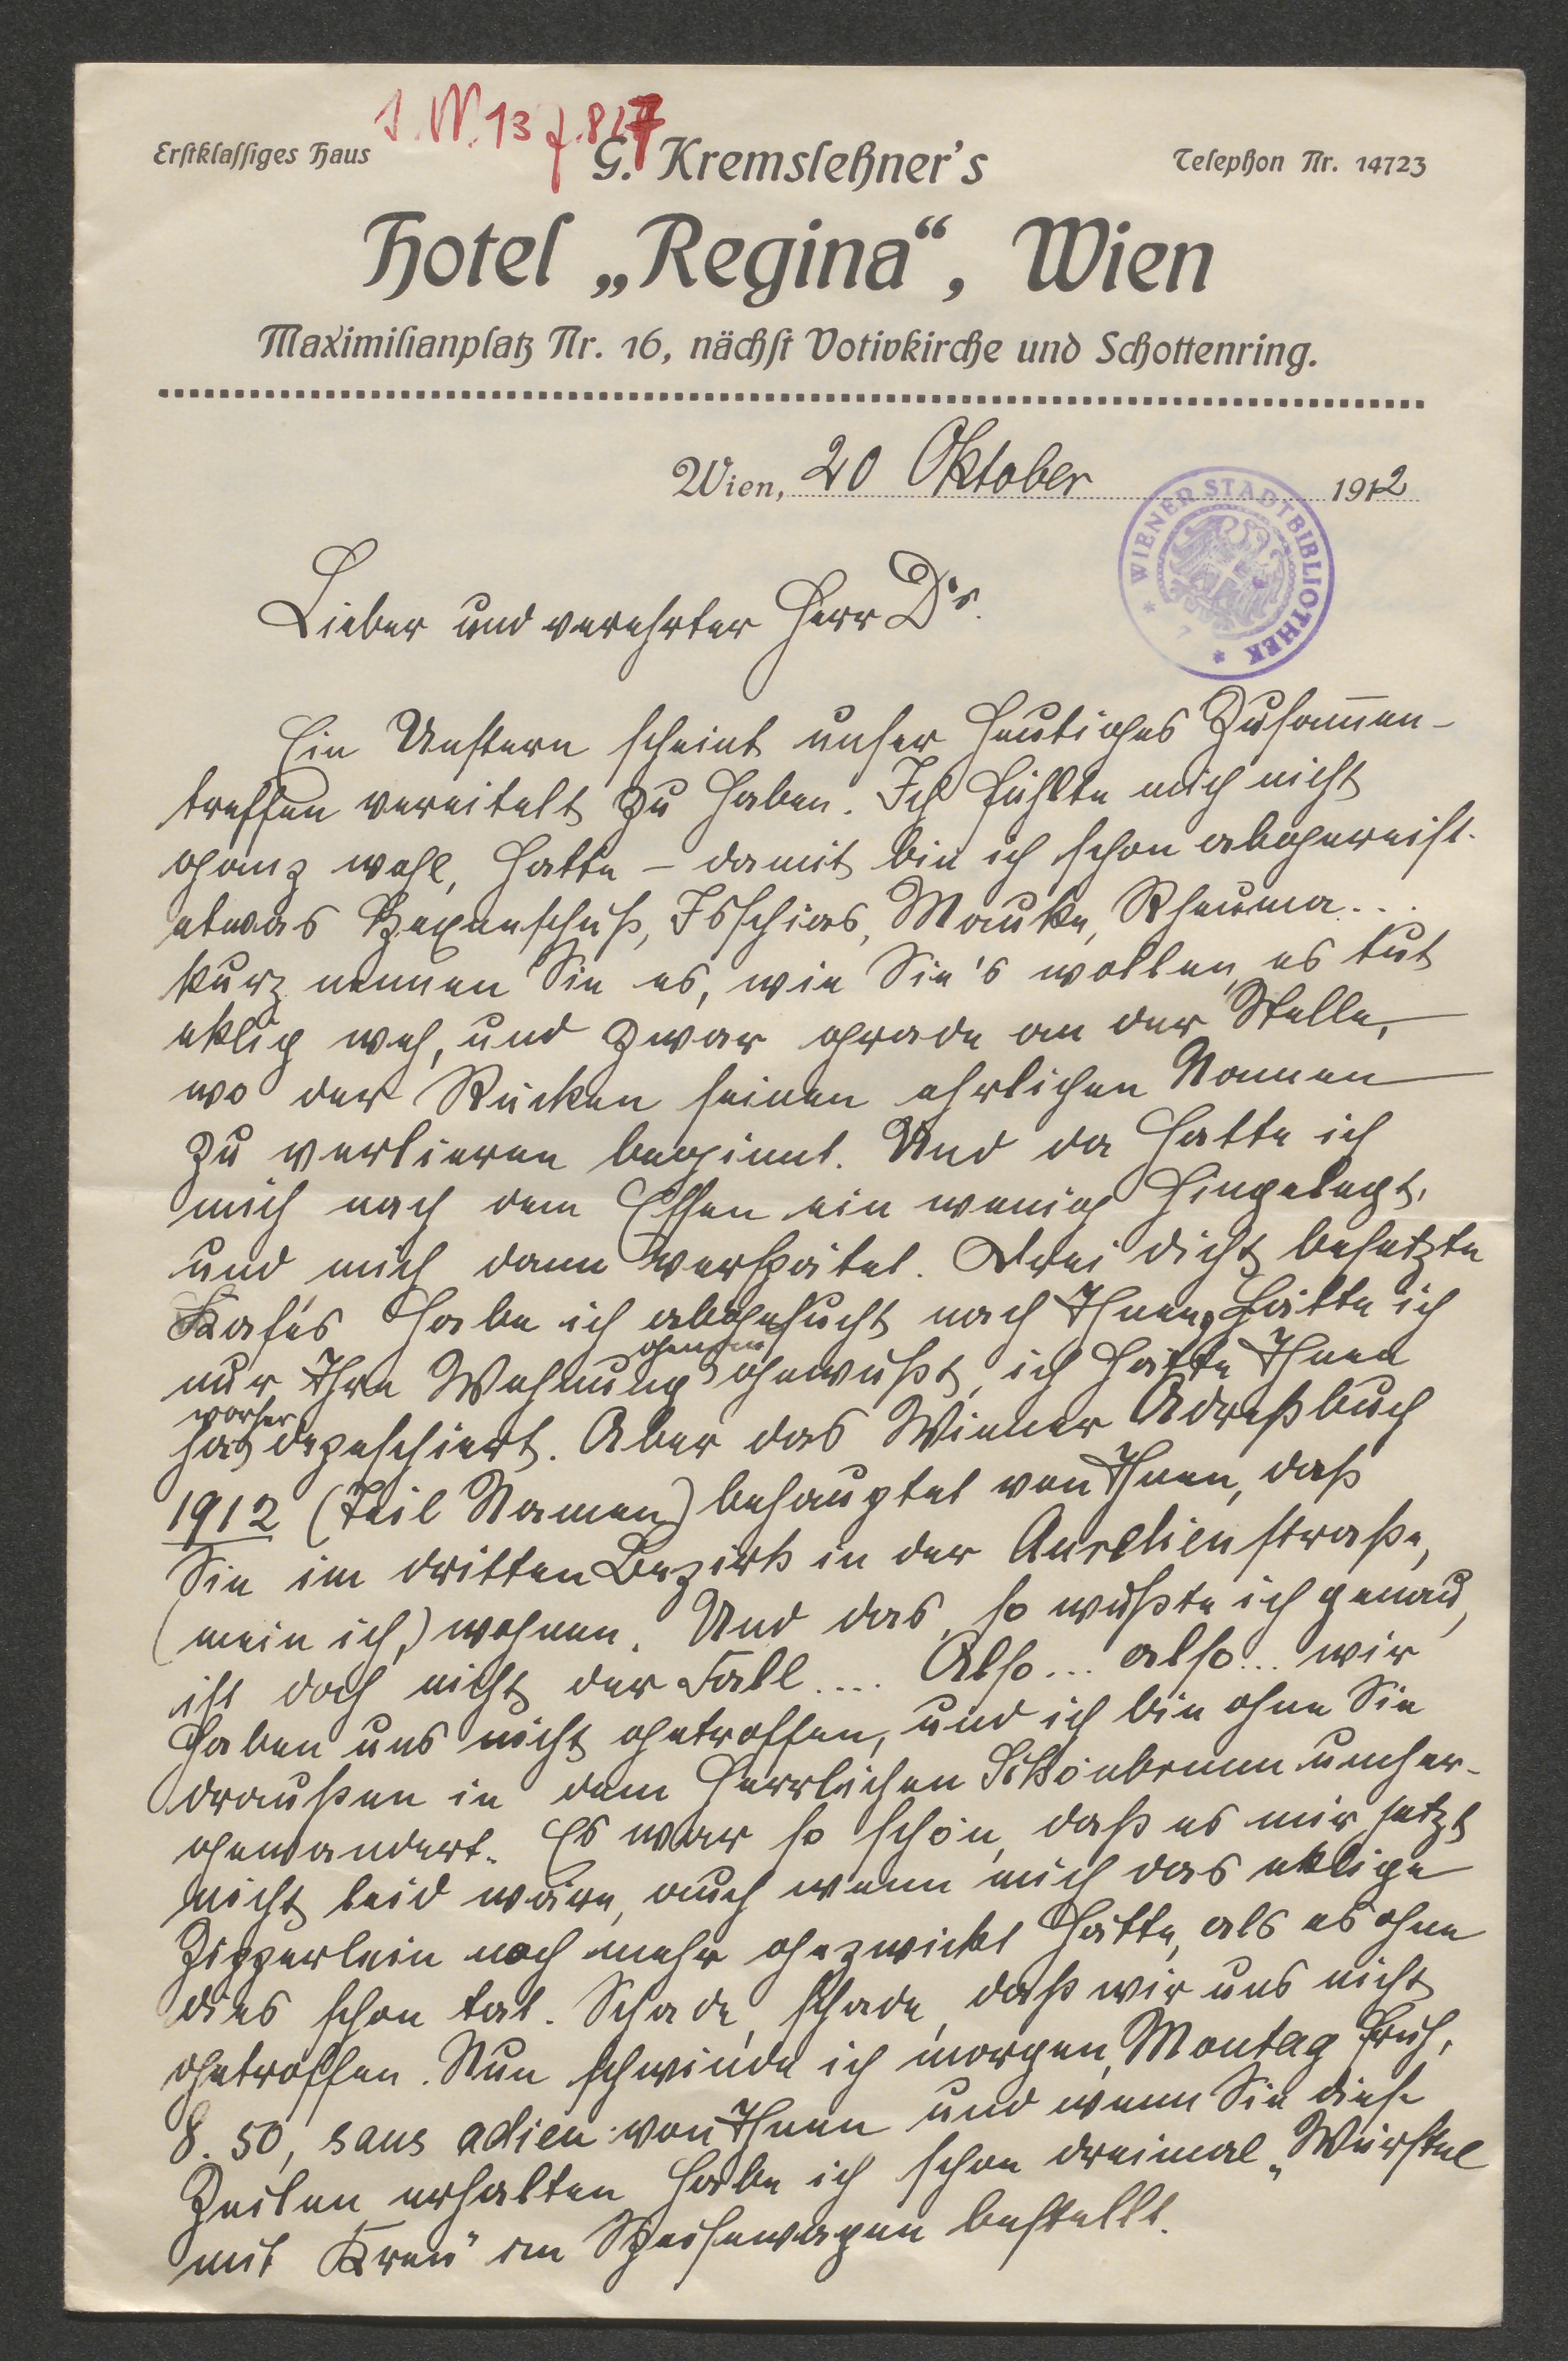 I.N. 137.827
Erstklassiges Haus
G. Kremslehner's
Telephon Nr. 14723
Hotel „Regina“, Wien
Maximilianplatz Nr. 16, nächst Votivkirche und Schottenring.
Wien, 20 Oktober 1912
WIENER STADTBIBLIOTHEK
Lieber und verehrter Herr Dr.
Ein Unstern scheint unser heutiges Zusam̅en-
treffen vereitelt zu haben. Ich fühlte mich nicht
ganz wohl, hatte – damit bin ich schon abgereist.
etwas Hexenschuß, Isschias, Mauke, Rheuma...
kurz nennen Sie es, wie Sie's wollen, es tut
eklig weh, und zwar grade an der Stelle,
wo der Rücken seinen ehrlichen Namen
zu verlieren beginnt. Und da hatte ich
mich nach dem Essen ein wenig hingelegt,
und mich dann verspätet. Drei dicht besetzte
Kafés habe ich abgesucht nach Ihnen, hätte ich
nur Ihre Wohnung genau gewußt, ich hätte Ihnen
vorher depeschiert. Aber das Wiener Adreßbuch
1912 (Teil Namen) behauptet von Ihnen, daß
Sie im dritten Bezirk in der Aurelienstraße,
(mein ich,) wohnen. Und das, so wußte ich genau,
ist doch nicht der Fall.... Also... also... wir
haben uns nicht getroffen, und ich bin ohne Sie
draußen in dem herrlichen Schönbrunn umher-
gewandert. Es war so schön, daß es mir jetzt
nicht leid wäre, auch wenn mich das eklige
Zipperlein noch mehr gezwickt hätte, als es ohne
dies schon tat. Schade, schade, daß wir uns nicht
getroffen. Nun schwinde ich morgen, Montag früh,
8.50, sans adieu von Ihnen und wenn Sie diese
Zeilen erhalten habe ich schon dreimal „Würstel
mit Kren“ im Speisewagen bestellt.